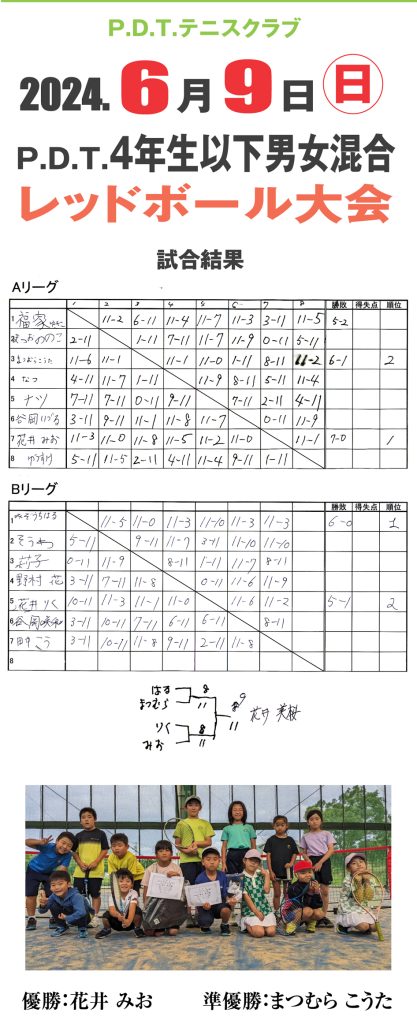 P.D.T.テニスクラブ
2024.6月9日(日)
P.D.T.4年生以下男女混合
レッドボール大会
試合結果
Aリーグ
1 2 3 4 5 6 7 8 勝敗 得失点 順位
1 福家 11-2 6-11 11-4 11-7 11-3 3-11 11-5 5-2
2 2-11 1-11 11-7 11-7 11-9 0-11 5-11
3 まつむらこうた 11-6 11-1 11-1 11-0 1-11 8-11 11-2 6-1 2
4 なつ 4-11 11-7 1-11 11-9 8-11 5-11 11-4
5 ナツ 7-11 7-11 0-11 9-11 7-11 2-11 4-11
6 谷岡 3-11 9-11 11-1 11-8 11-7 0-11 11-9
7 花井 みお 11-3 11-0 11-8 11-5 11-2 11-0 11-1 7-0 1
8 ゆうすけ 5-11 11-5 2-11 4-11 11-4 9-11 1-11
Bリーグ
勝敗 得失点 順位
1 みぞうちはる 11-5 11-0 11-3 11-10 11-3 11-3 6-0 1
2 5-11 9-11 11-7 3-11 11-10 11-10
3 莉子 0-11 11-9 8-11 1-11 11-7 8-11
4 野村 花 3-11 7-11 11-8 0-11 11-6 11-9
5 花井 りく 10-11 11-3 11-1 11-0 11-6 11-2 5-1 2
6 谷岡 3-11 10-11 7-11 6-11 6-11 8-11
7 田中 こう 3-11 10-11 11-8 9-11 2-11 11-8
8
はる 8
まつむら 11
8 9
11
花井 美桜
りく 8
みお 11
優勝:花井 みお 準優勝:まつむら こうた